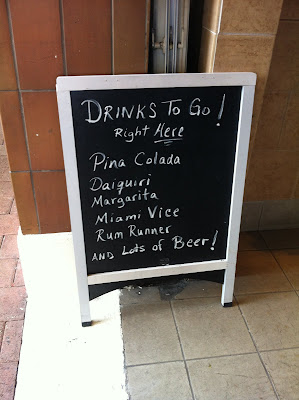 DRINKS TO GO!
Right Here
Pina Colada
Daiquiri
Margarita
Miami Vice
Rum Runner
AND LOTS of BEER!